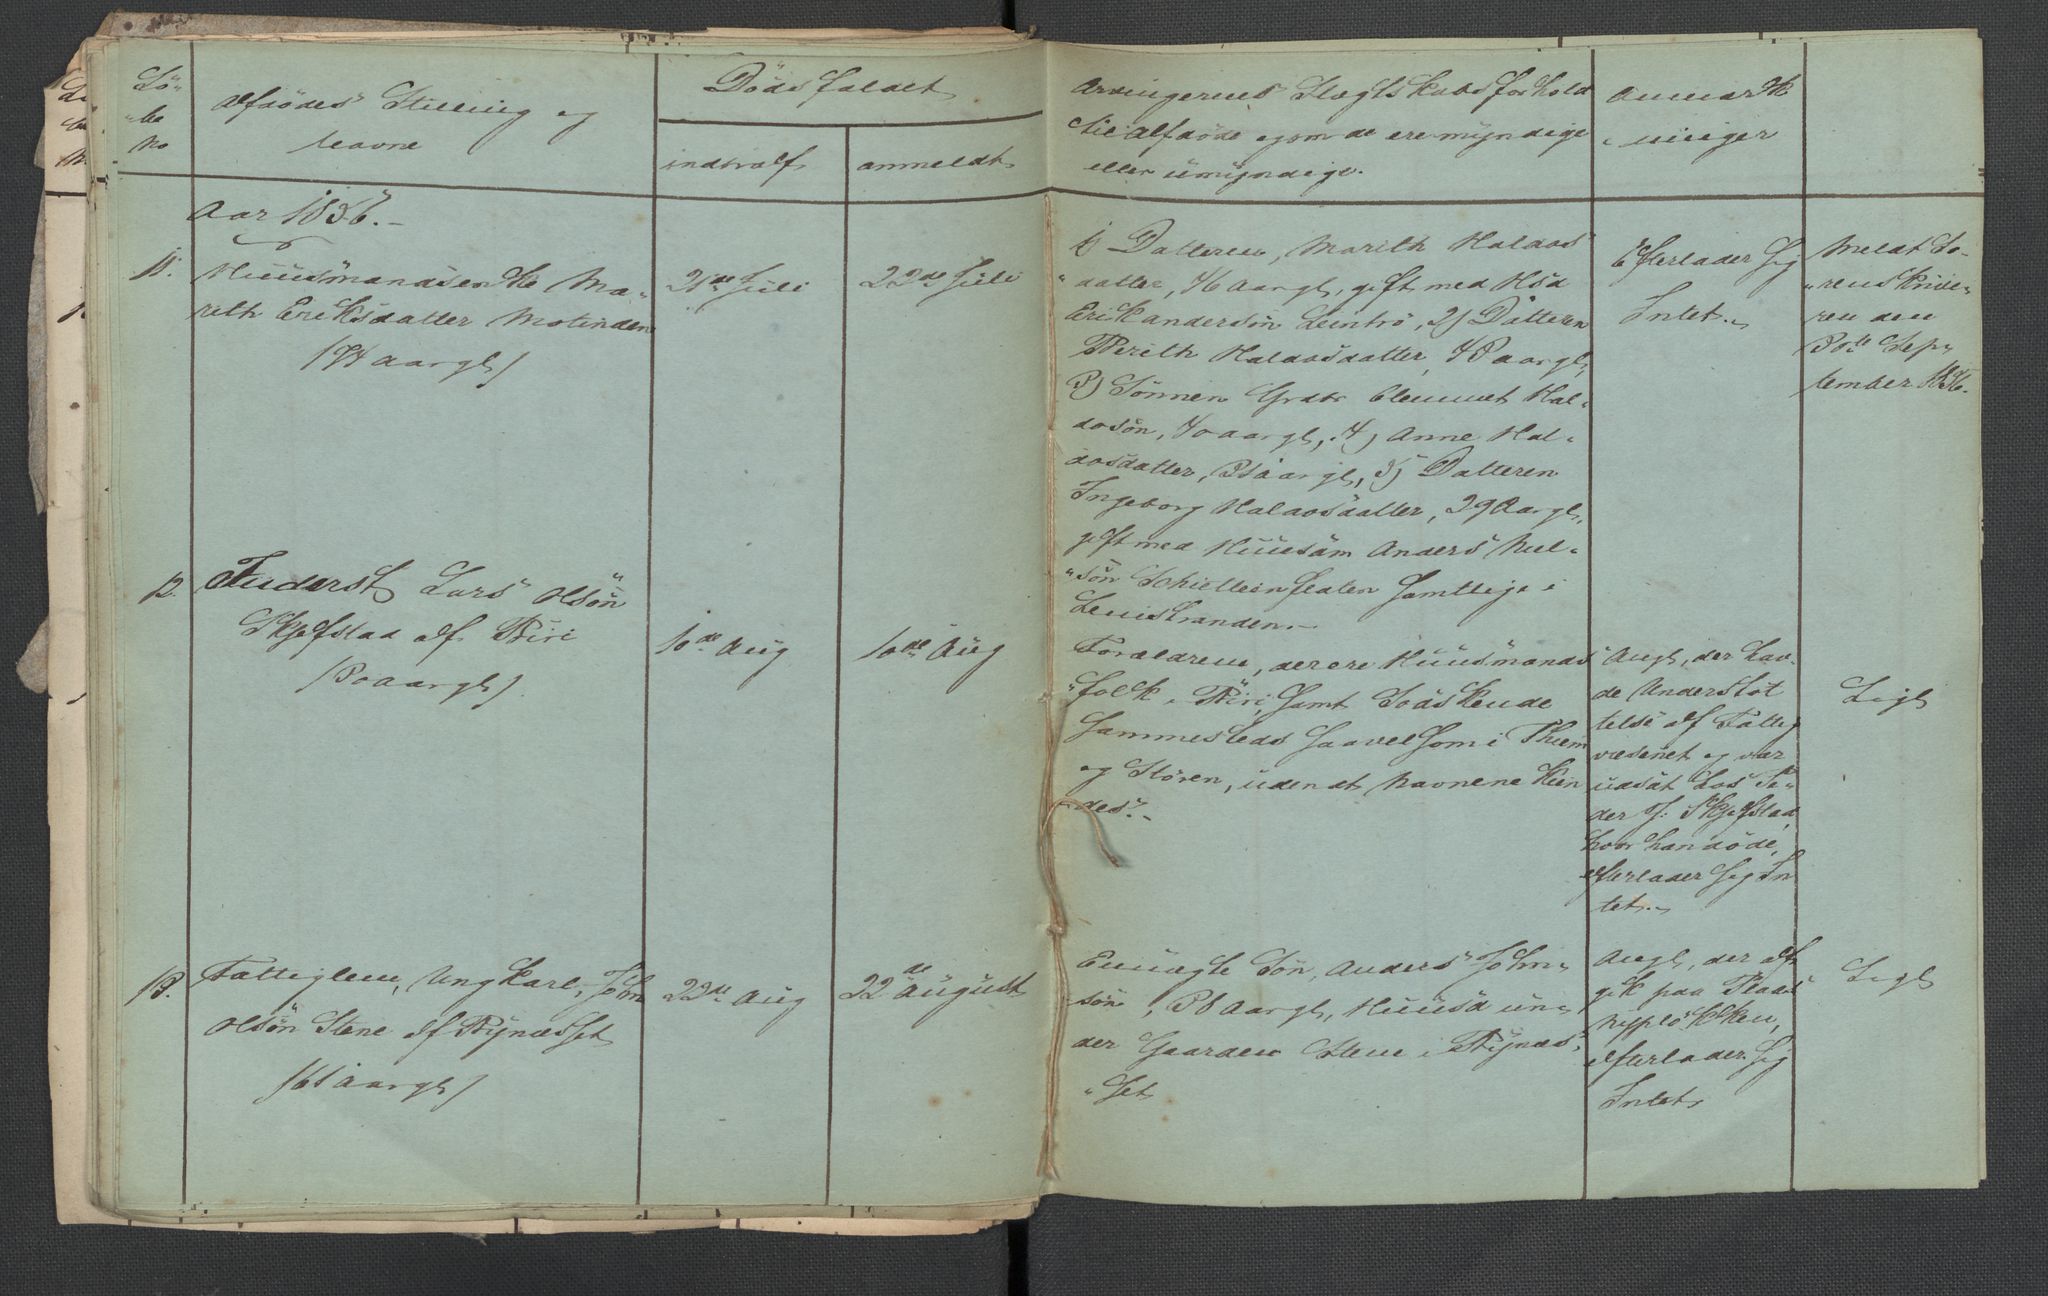 Lö-
"be
No
Afdödes Stilling og
Navne
Dödsfaldet
indtraf
anmeldt
Arvingernes Slægtskabsforhold
til Afdöde og om de ere myndige
eller umyndige.
Anmærk
"ninger
Aar 1856.-
11.
Huusmandsenke Ma-
"rith Eriksdatter Molinden
(74 Aargl)
21de Juli
22de Juli
1) Datteren, Marith Haldos
"datter, 46 Aargl, gift med Hsd
Erik Andersön Leintrö, 2) Datteren
Berith Haldosdatter, 43 aargl,
3) Sönnen Grdbr Clemmet Hal-
dosön, 40 aargl, 4) Anne Hal-
dosdatter, 35 aargl, 5) Datteren
Ingeborg Haldosdatter, 29 Aargl,
gift med Huusdm Anders Niel-
"sön
samtlige i
Leinstranden.-
Efterlader Sig
Intet.-
Meldt So-
"renskrive-
ren den
30te Sep-
tember 1856.
12.
Inderst Lars Olsön
Skjefstad af Biri
(30 aargl)
10de Aug
10de Aug
Forældrene, der ere Huusmands
"folk i Biri, samt Södskende
sammesteds saavelsom i
og Stören, uden at Navnene kien
des.-
Angl, der hav-
de Understöt
telse af Fattig
væsenet og var
udsat Los
der f: Skjefstad,
hvor han döde,
efterlader sig In
tet.-
Ligl
13.
Fattiglem, Ungkarl, John
Olsön Stene af Bynæsset
(61 Aargl)
22de Aug
22de August
Enuægte Sön, Anders John-
sön, 36 Aargl, Huusmd un-
der Gaarden Stene i Bynæs-
"set
Angl, der af
gik paa Plads
efterlader sig
Intet
Ligl